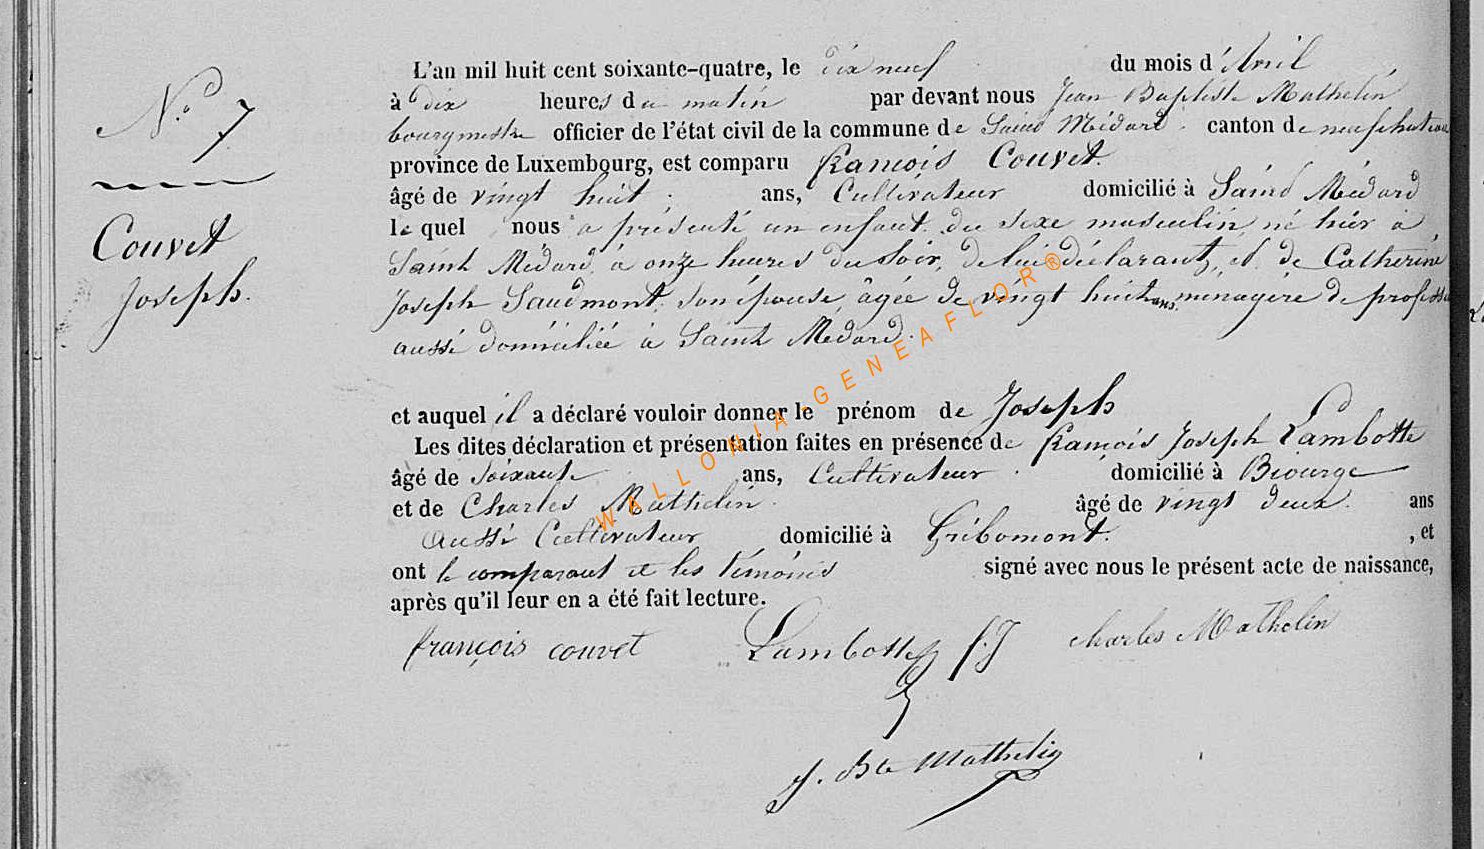 N.° 7
Couvet
Joseph.
L'an mil huit cent soixante-quatre, le dix neuf du mois d'Avril
à dix heures du matin par devant nous Jean Baptiste Mathelin
bourgmestre officier de l'état civil de la commune de Saint Médard. canton de neufchateau
province de Luxembourg, est comparu François Couvet
âgé de vingt huit. ans, Cultivateur domicilié à Saint Médard
le quel nous a présenté un enfant du sexe masculin né hier à
Saint Médard, à onze heures du soir, de lui déclarant, et de Catherine
Joseph Saudmont, son épouse âgée de vingt huit ans, ménagère de profession
aussi domiciliée à Saint Médard.
et auquel il a déclaré vouloir donner le prénom de Joseph
Les dites déclaration et présentation faites en présence de François Joseph Lambotte
âgé de soixante ans, Cultivateur. domicilié à Biourge
et de Charles Mathelin. âgé de vingt deux. ans
aussi Cultivateur domicilié à Gribomont. , et
ont le comparant et les témoins signé avec nous le présent acte de naissance,
après qu'il leur en a été fait lecture.
françois couvet Lambotte f. J charles Mathelin
J. Bte Mathelin
WALLONIA-GENEAFLOR®